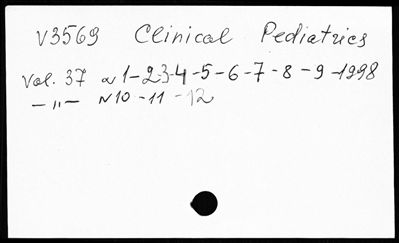 V3569 Clinical Pediatrics
Vol. 37 N 1-2-3-4-5-6-7-8-9-1998
-"- N 10-11-12